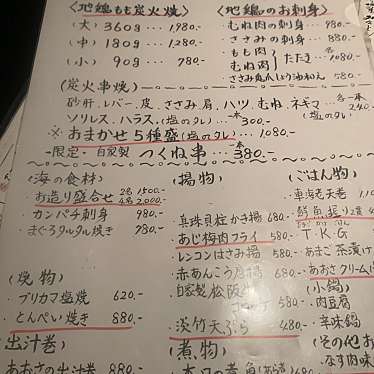 〈地鶏もも炭火焼〉
(大) 360g … 1980.-
(中) 180g … 1280.-
(小) 90g … 780.-
〈地鶏のお刺身〉
・むね肉の刺身 980.-
・ささみの刺身 880.-
・もも肉
・むね肉 タタキ 各1080.-
(炭火串焼)
砂肝、レバー、皮、ささみ、肩、ハツ、むね、ネギマ 各一本 240.-
ソリレス、ハラス、(塩のタレ) 一本 300.- (塩のタレ)
※おまかせ5種盛(塩のタレ)… 1080.-
-限定・自家製 つくね串… 一本 380.-
(海の食材)
お造り盛合せ 2名 1500.- 4名 2,000.-
・カンパチ刺身 980.-
・まぐろタルタル焼き 780.-
(焼物)
・ブリカマ塩焼 620.-
・とんぺい焼き 880.-
(出汁巻)
・あおさの出汁巻 880.-
(揚物)
・貝柱かき揚 680.-
・あじ梅肉フライ 580.-
・レンコンはさみ揚 580.-
・赤あんこう唐揚
・自家製松阪
580.-
・淡竹天ぷら 480.-
(煮物)
(ごはん物)
・車海老天巻 110
・鮮魚握り2貫
・T.K.G
・あまご茶漬け
・あおさクリーム
(小鍋)
・肉豆腐
・辛味鍋
(その他お
・なす肉味